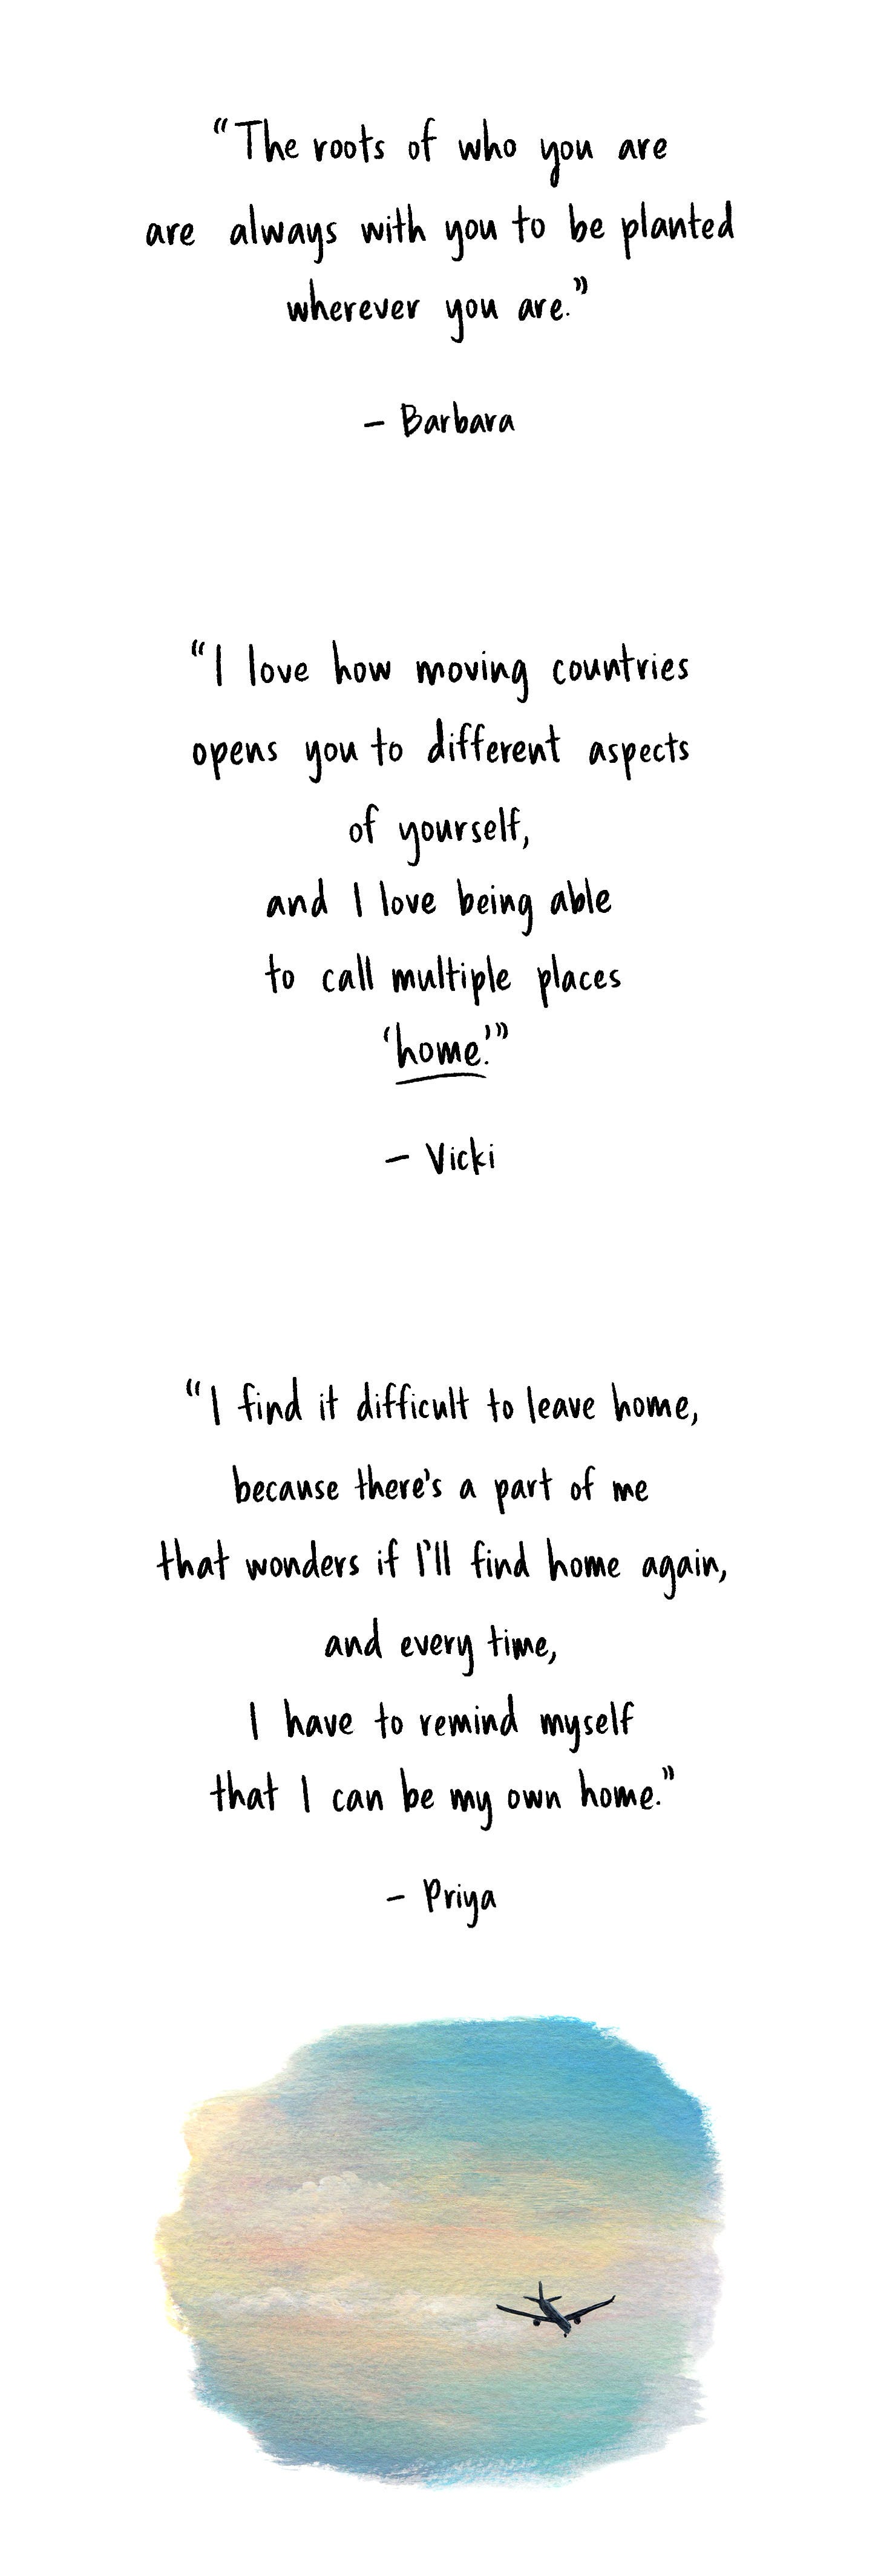 “The roots of who you are
are always with you to be planted
wherever you are.”
– Barbara
“I love how moving countries
opens you to different aspects
of yourself,
and I love being able
to call multiple places
‘home.’”
– Vicki
“I find it difficult to leave home,
because there’s a part of me
that wonders if I’ll find home again,
and every time,
I have to remind myself
that I can be my own home.”
– Priya